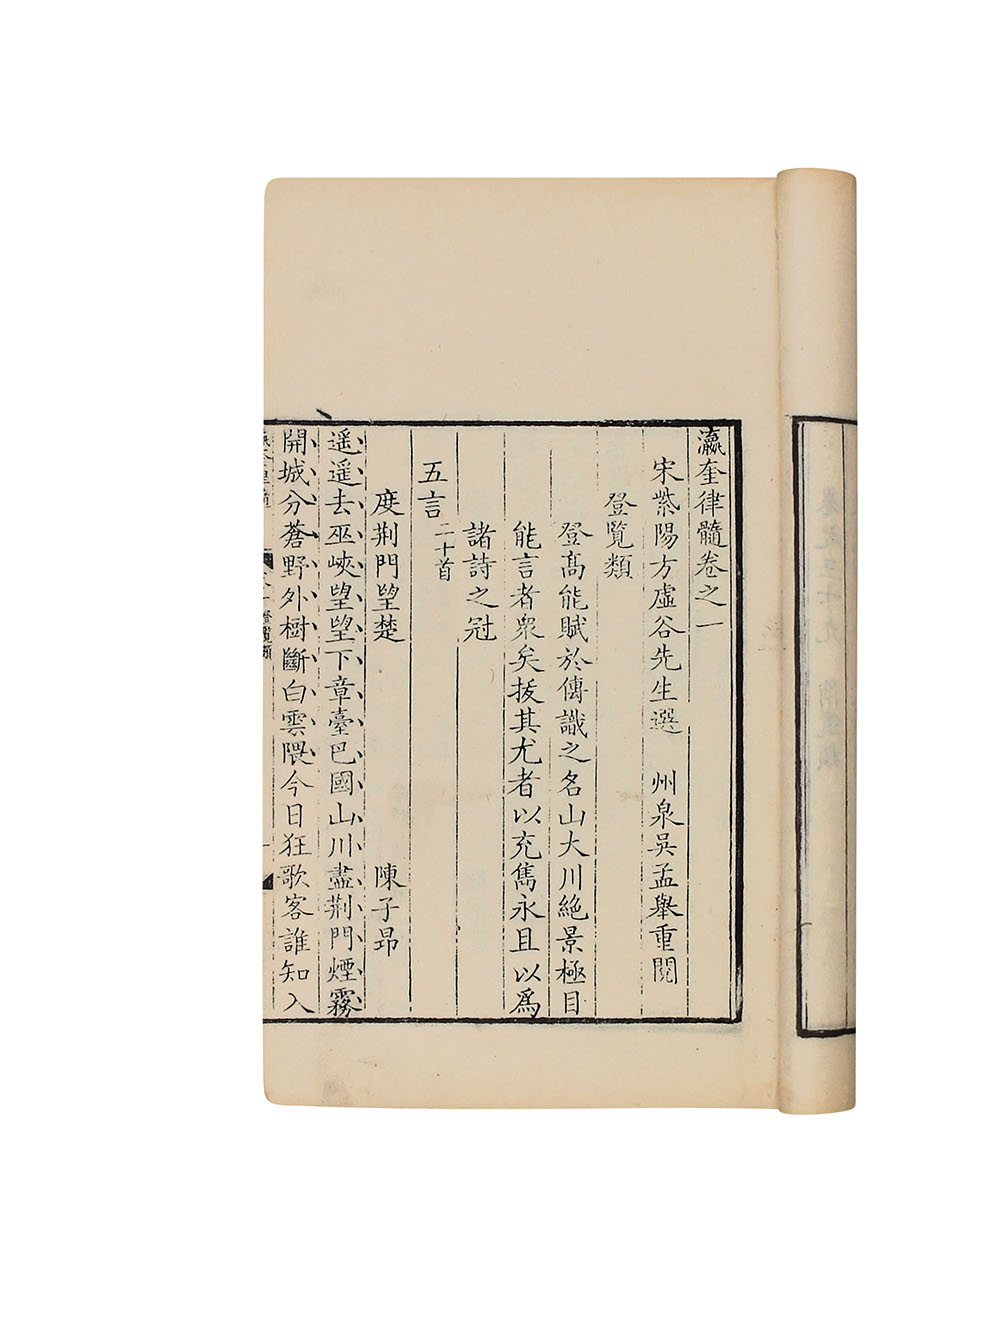 瀛奎律髓卷之一
宋紫陽方虛谷先生選　州泉吳孟舉重閱
登覽類
登髙能賦於傳識之名山大川絶景極目
能言者衆矣拔其尤者以充雋永且以爲
諸詩之冠
五言二十首
度荆門望楚　陳子昂
遥遥去巫峽望望下章臺巴國山川盡荆門煙霧
開城分蒼野外樹斷白雲隈今日狂歌客誰知入